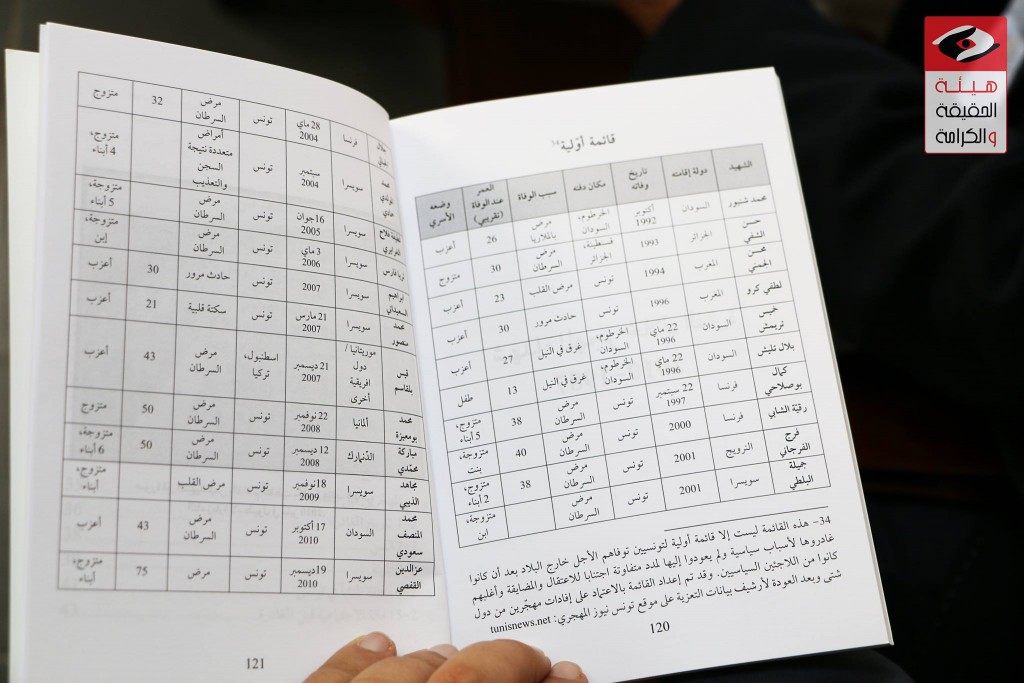 هيئة
الحقيقة
والكرامة
قائمة أوّلية³⁴
الشهيد | دولة إقامته | تاريخ وفاته | مكان دفنه | سبب الوفاة | العمر عند الوفاة (تقريبي) | وضعه الأسري
محمد شنيور | السودان | أكتوبر 1992 | الخرطوم، السودان | مرض بالملاريا | 26 | أعزب
حسن الشلفي | الجزائر | 1993 | قسطينة، الجزائر | مرض السرطان | 30 | متزوج
محسن الجمني | المغرب | 1994 | تونس | مرض القلب | 23 | أعزب
لطفي كرو | المغرب | 1996 | تونس | حادث مرور | 30 | أعزب
خميس تريمش | السودان | 22 ماي 1996 | الخرطوم، السودان | غرق في النيل | 27 | أعزب
بلال تليش | السودان | 22 ماي 1996 | الخرطوم، السودان | غرق في النيل | 13 | طفل
كمال بوصلاحي | فرنسا | 22 سبتمبر 1997 | تونس | مرض السرطان | 38 | متزوج، 5 أبناء
رقيّة الشابي | فرنسا | 2000 | تونس | مرض السرطان | 40 | متزوجة، بنت
فرج الفرجاني | النرويج | 2001 | تونس | مرض السرطان | 38 | متزوج، 2 أبناء
جميلة البلطي | سويسرا | 2001 | تونس | مرض السرطان | متزوجة، ابن
34– هذه القائمة ليست إلا قائمة أولية لتونسيين توفاهم الأجل خارج البلاد بعد أن كانوا
غادروها لأسباب سياسية ولم يعودوا إليها لمدد متفاوتة اجتنابا للاعتقال والمضايقة وأغلبهم
كانوا من اللاجئين السياسيين. وقد تم إعداد القائمة بالاعتماد على إفادات مهجّرين من دول
شتى وبعد العودة لأرشيف بيانات التعزية على موقع تونس نيوز المهجري: tunisnews.net
120
فرنسا | 28 ماي 2004 | تونس | مرض السرطان | 32 | متزوج
سويسرا | سبتمبر 2004 | تونس | أمراض متعددة نتيجة السجن والتعذيب | متزوج، 4 أبناء
سويسرا | 16جوان 2005 | تونس | مرض السرطان | متزوجة، 5 أبناء
ثريا فارس | سويسرا | 3 ماي 2006 | تونس | مرض السرطان | متزوجة، إبن
ابراهيم السعيداني | سويسرا | 2007 | تونس | حادث مرور | 30 | أعزب
محمد منصور | سويسرا | 21 مارس 2007 | تونس | سكتة قلبية | 21 | أعزب
قيس بلقاسم | موريتانيا / دول افريقية أخرى | 21 ديسمبر 2007 | اسطنبول، تركيا | مرض السرطان | 43 | أعزب
محمد بومعيزة | ألمانيا | 22 نوفمبر 2008 | تونس | مرض السرطان | 50 | متزوج
مباركة محمّدي | الدّنمارك | 12 ديسمبر 2008 | تونس | مرض السرطان | 50 | متزوجة، 6 أبناء
مجاهد الذيبي | سويسرا | 18نوفمبر 2009 | تونس | مرض القلب | متزوج، أبناء
محمد المنصف سعودي | السودان | 17 أكتوبر 2010 | تونس | مرض السرطان | 43 | أعزب
عزالدين القفصي | سويسرا | 19ديسمبر 2010 | تونس | مرض | 75 | متزوج، أبناء
121